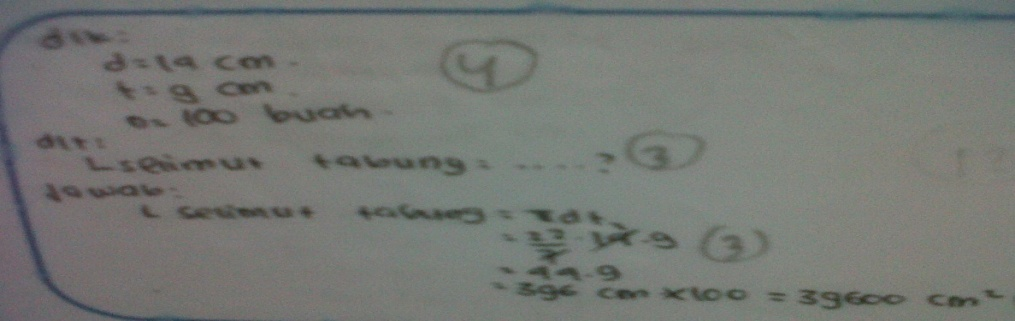 dik:
d = 14 cm. (4)
t = 9 cm.
n = 100 buah.
dit:
L selimut tabung = ....? (3)
Jawab:
L selimut tabung = πdt
= 22/7 · 14 · 9 (3)
= 44 · 9
= 396 cm × 100 = 39600 cm²